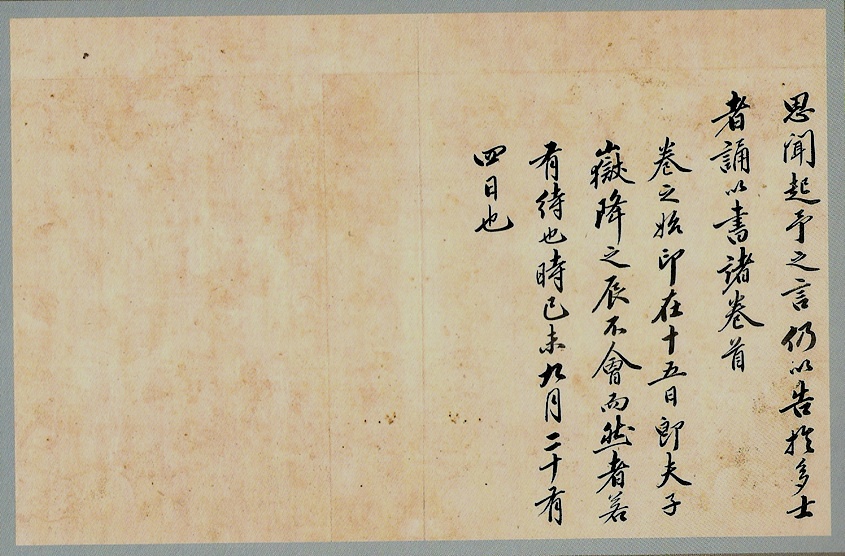 思聞起予之言仍以告於多士
者誦以書諸卷首
卷之始印在十五日即夫子
嶽降之辰不會而然者若
有待也時己未九月二十有
四日也